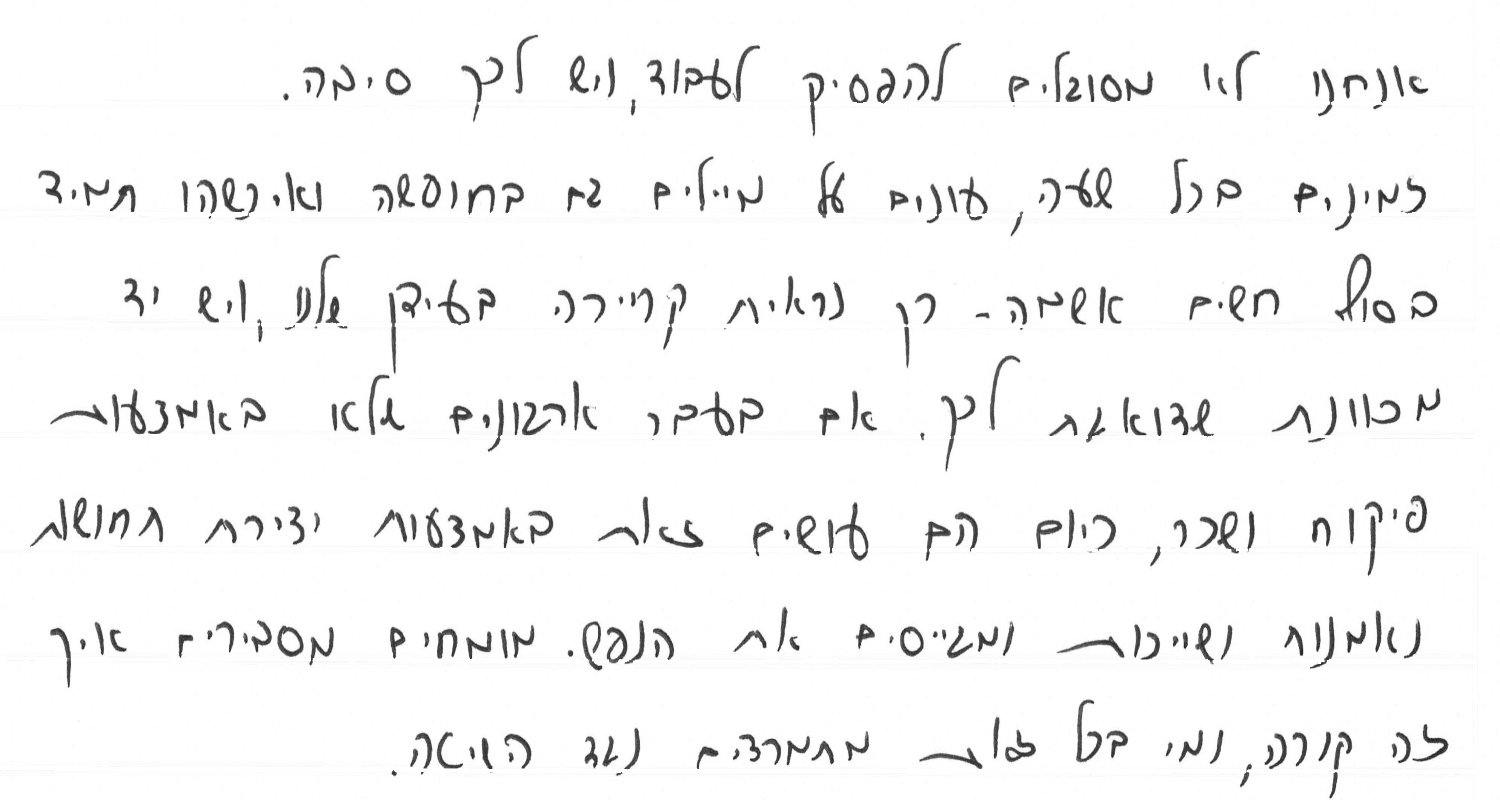 אנחנו לא מסוגלים להפסיק לעבוד, ויש לכך סיבה.
זמינים בכל שעה, עונים על מיילים גם בחופשה ואיכשהו תמיד
בסוף חשים אשמה - כך נראית קריירה בעידן שלנו, ויש יד
מכוונת שדואגת לכך. אם בעבר ארגונים מלאו באמצעות
פיקוח ושכר, כיום הם עושים זאת באמצעות יצירת תחושת
נאמנות ושייכות ומגייסים את הנפש. מומחים מסבירים איך
זה קורה, ומי בכל זאת מתמרדים נגד השיטה.